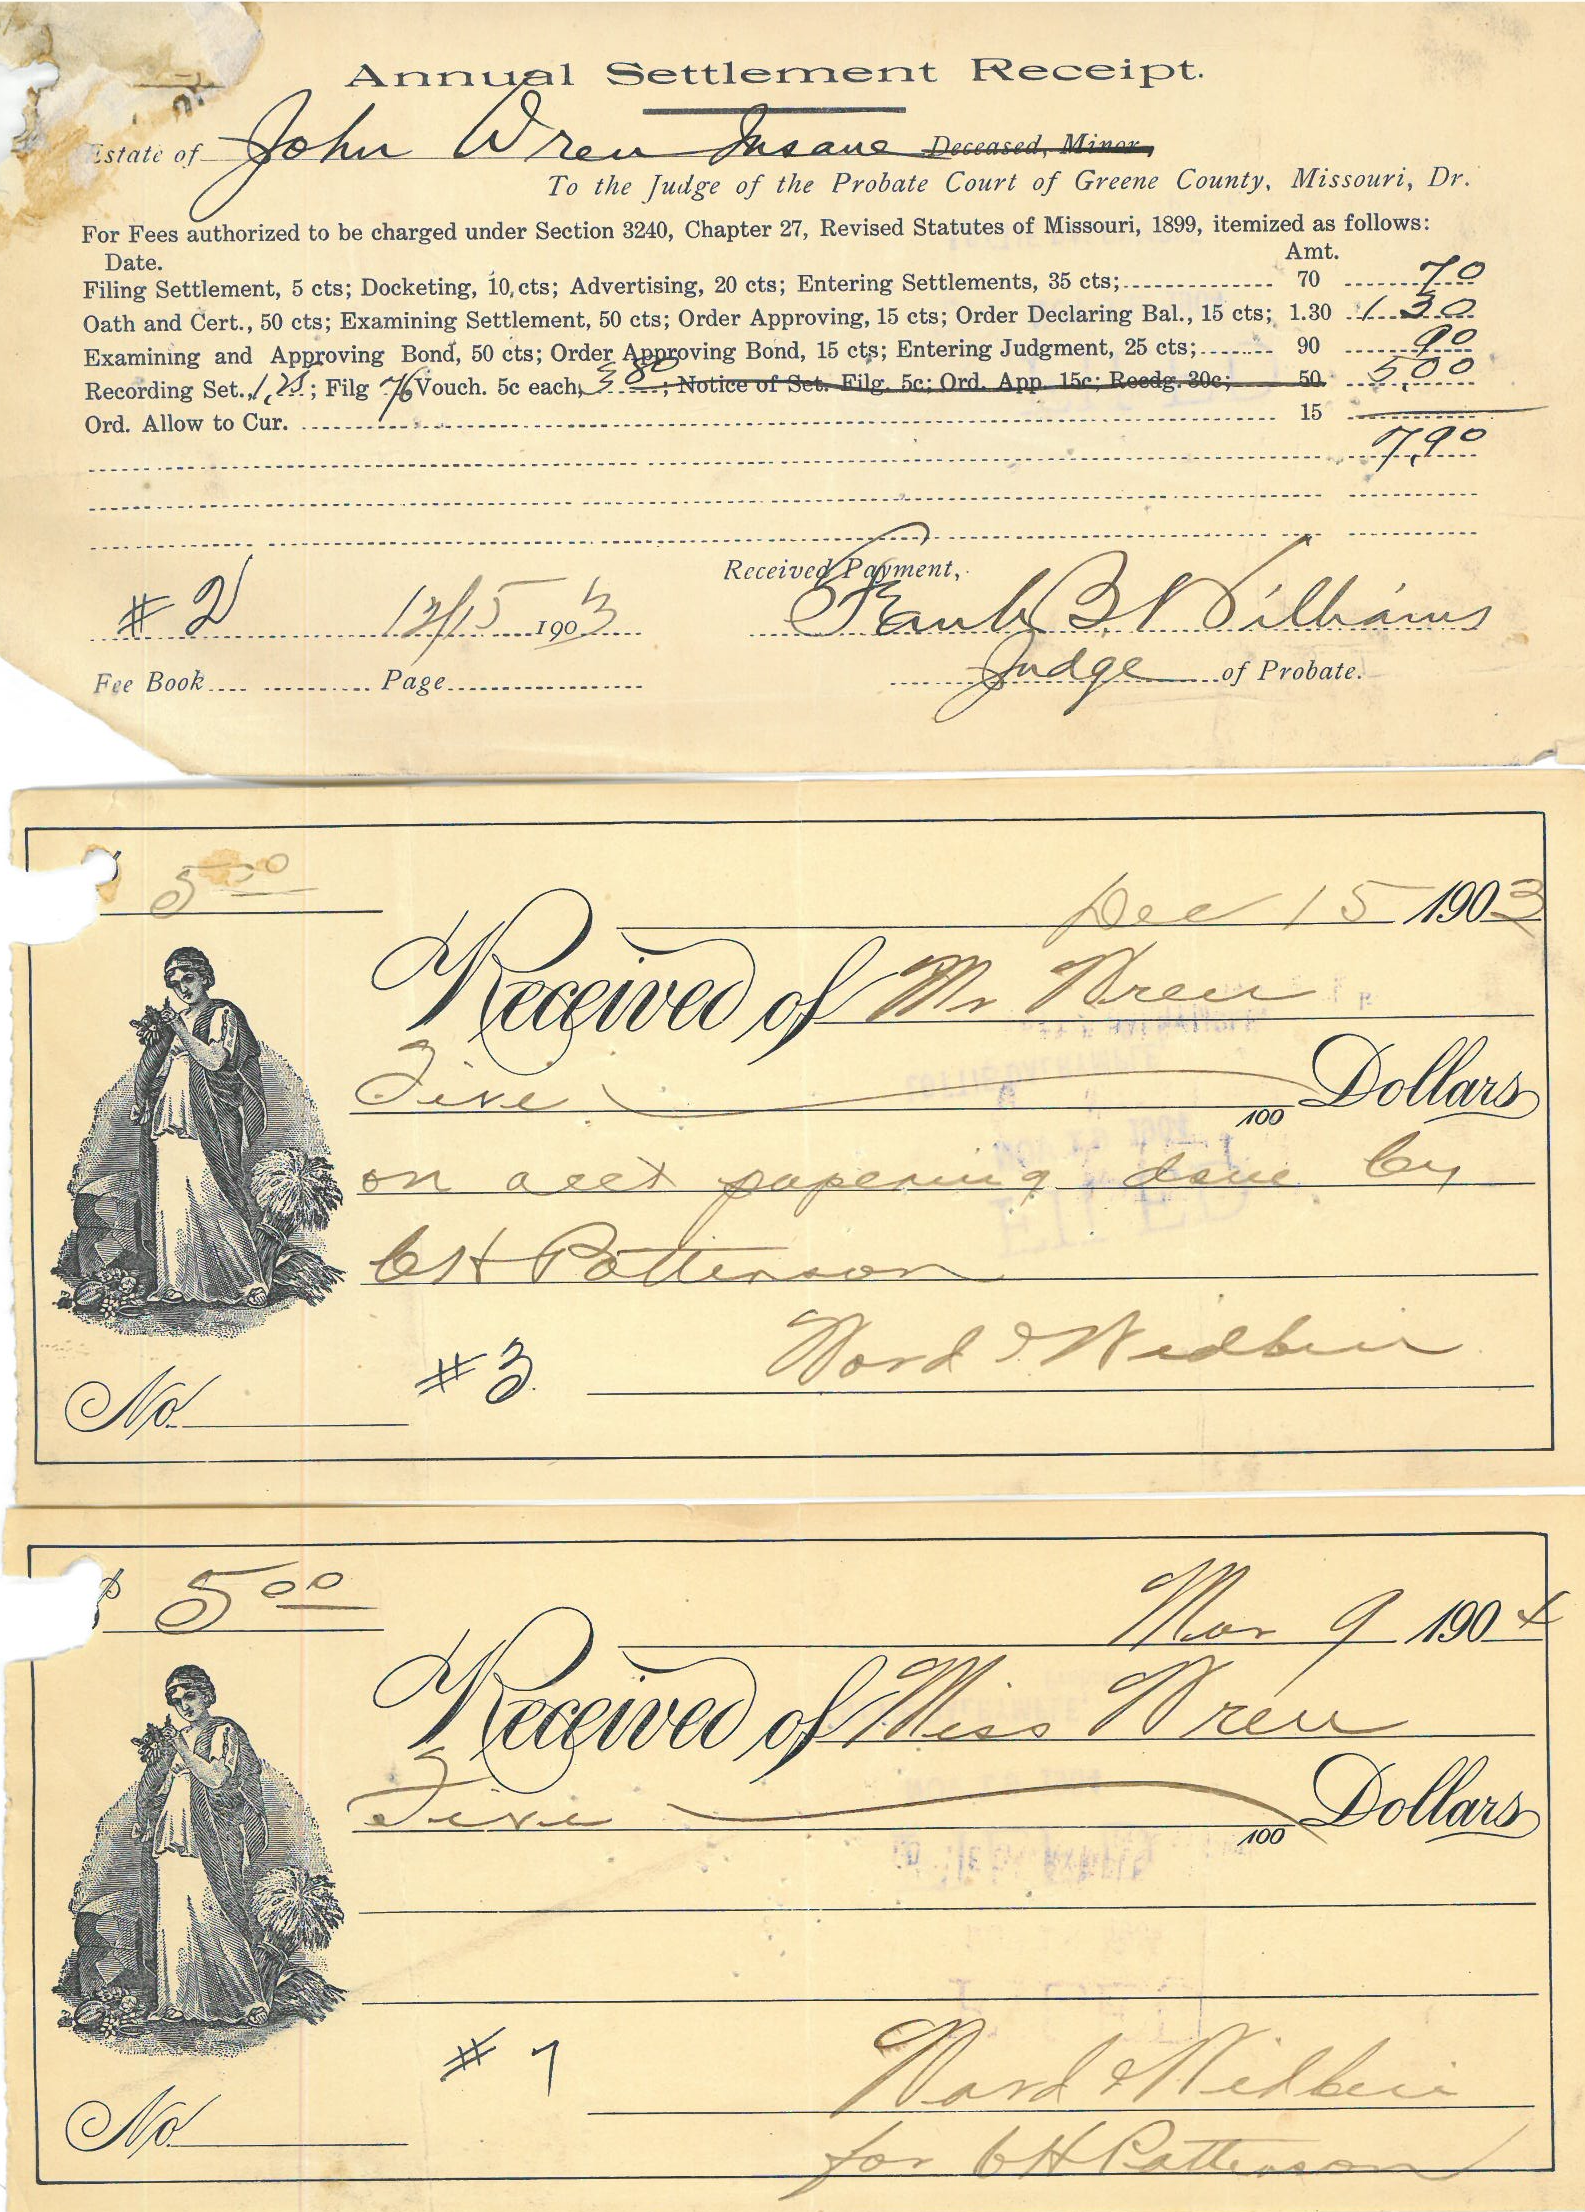 Annual Settlement Receipt.
Estate of John Wren Insane Deceased, Minor,
To the Judge of the Probate Court of Greene County, Missouri, Dr.
For Fees authorized to be charged under Section 3240, Chapter 27, Revised Statutes of Missouri, 1899, itemized as follows:
Date. Amt.
Filing Settlement, 5 cts; Docketing, 10 cts; Advertising, 20 cts; Entering Settlements, 35 cts; 70 70
Oath and Cert., 50 cts; Examining Settlement, 50 cts; Order Approving, 15 cts; Order Declaring Bal., 15 cts; 1.30 1.30
Examining and Approving Bond, 50 cts; Order Approving Bond, 15 cts; Entering Judgment, 25 cts; 90 90
Recording Set., 1.25; Filg 76 Vouch. 5c each, 3.80; Notice of Set. Filg. 5c; Ord. App. 15c; Recdg. 30c; 50 5.00
Ord. Allow to Cur. 15
7.90
Received Payment,
# 2 12/15 1903 Frank B Williams
Fee Book Page Judge of Probate.
5 00
Dec 15 1903
Received of Mr Wren
Five 100 Dollars
on acct papering done by
C H Patterson
# 3 Ward &
No.
$ 5 00
Mar 9 1904
Received of Miss Wren
Five 100 Dollars
# 7 Ward &
No.
for C H Patterson